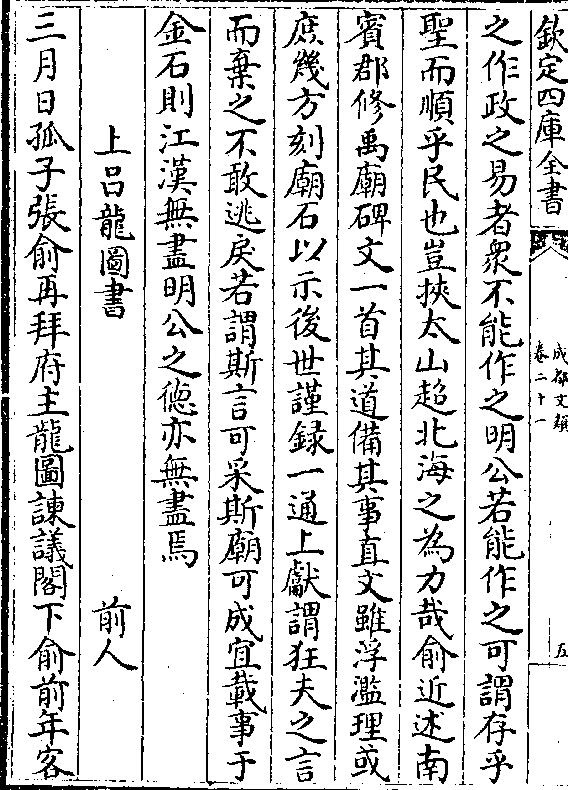 欽定四庫全書
成都文類
卷二十一
五
之作政之易者衆不能作之明公若能作之可謂存乎
聖而順乎民也豈挾太山超北海之為力哉俞近述南
賓郡修禹廟碑文一首其道備其事直文雖浮濫理或
庶幾方刻廟石以示後世謹録一通上獻謂狂夫之言
而棄之不敢逃戾若謂斯言可采斯廟可成宜載事于
金石則江漢無盡明公之德亦無盡焉
上呂龍圖書　前人
三月日孤子張俞再拜府主龍圖諫議閣下俞前年客